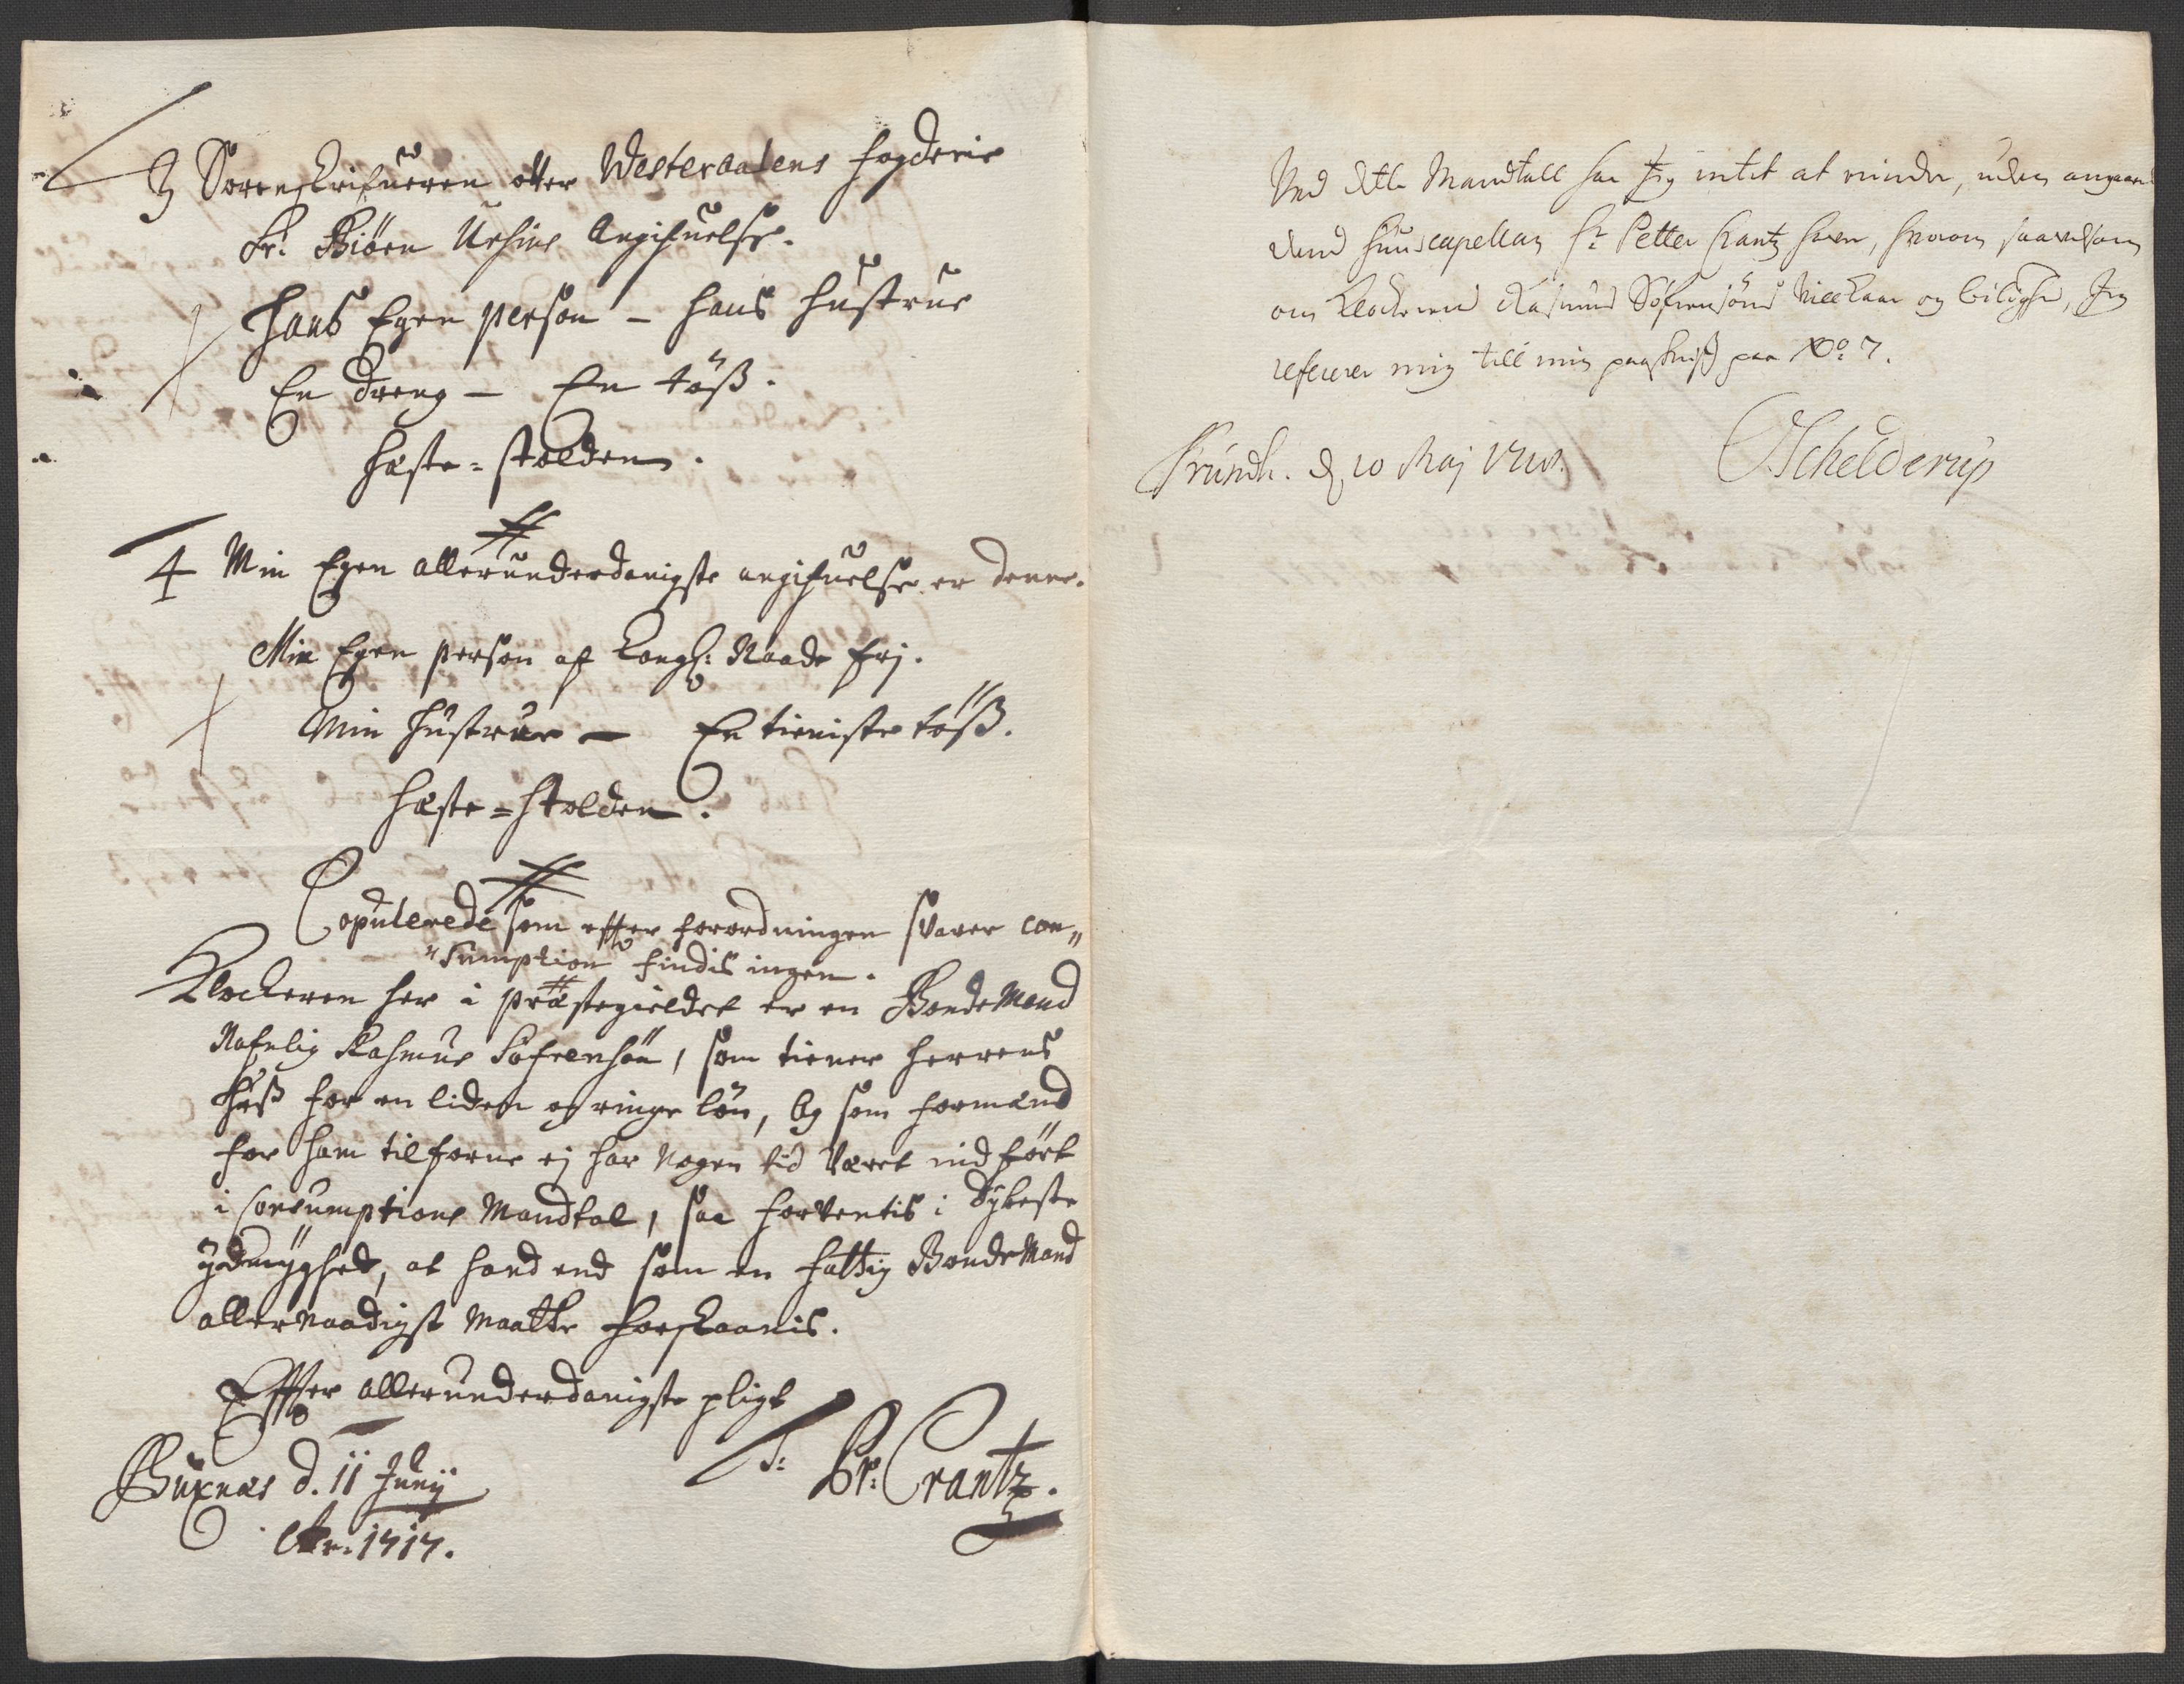 3 Sorenskrifueren ofuer Westeraalens fogderie
Sr: Biörn Ursins Angifuelse.
Hans Egen Person – hans hustrue
En dreng – En töß.
Hæste-skolden.
4 Min Egen allerunderdanigste angifuelse er denne.
Min Egen person af Kongl: Naade frj.
Min hustrue – En tieniste töß.
Hæste-skolden.
Copulerede som efter forordningen svarer con„
„sumption findis ingen.
Klockeren her i præstegieldet er en BondeMand
Nafnlig Rasmus Söfrensön, som tiener herrens
huß for en liden og ringe lön, og som formænd
for ham tilforne ej har nogen tid været indfört
i Consumptions Mandtal, saa forventis i dybeste
ydmyghed, at hand end som en fattig BondeMand
allernaadigst maatte forskaanis.
Efter allerunderdanigste pligt
Buxnæs d. 11 Junij
Ao: 1717.
Pr: Crantz.
Ved dette Mandtall har Jeg intet at minde, uden angaaend
dend huuscapellan Hr Petter Crantz haver, hvorom saavelsom
om Klockeren Rasmus Söfrensöns vilckaar og , Jeg
refererer mig till min paaskrifft paa No: 7.
Trundh. d, 10 Maj 1718.
Schelderup